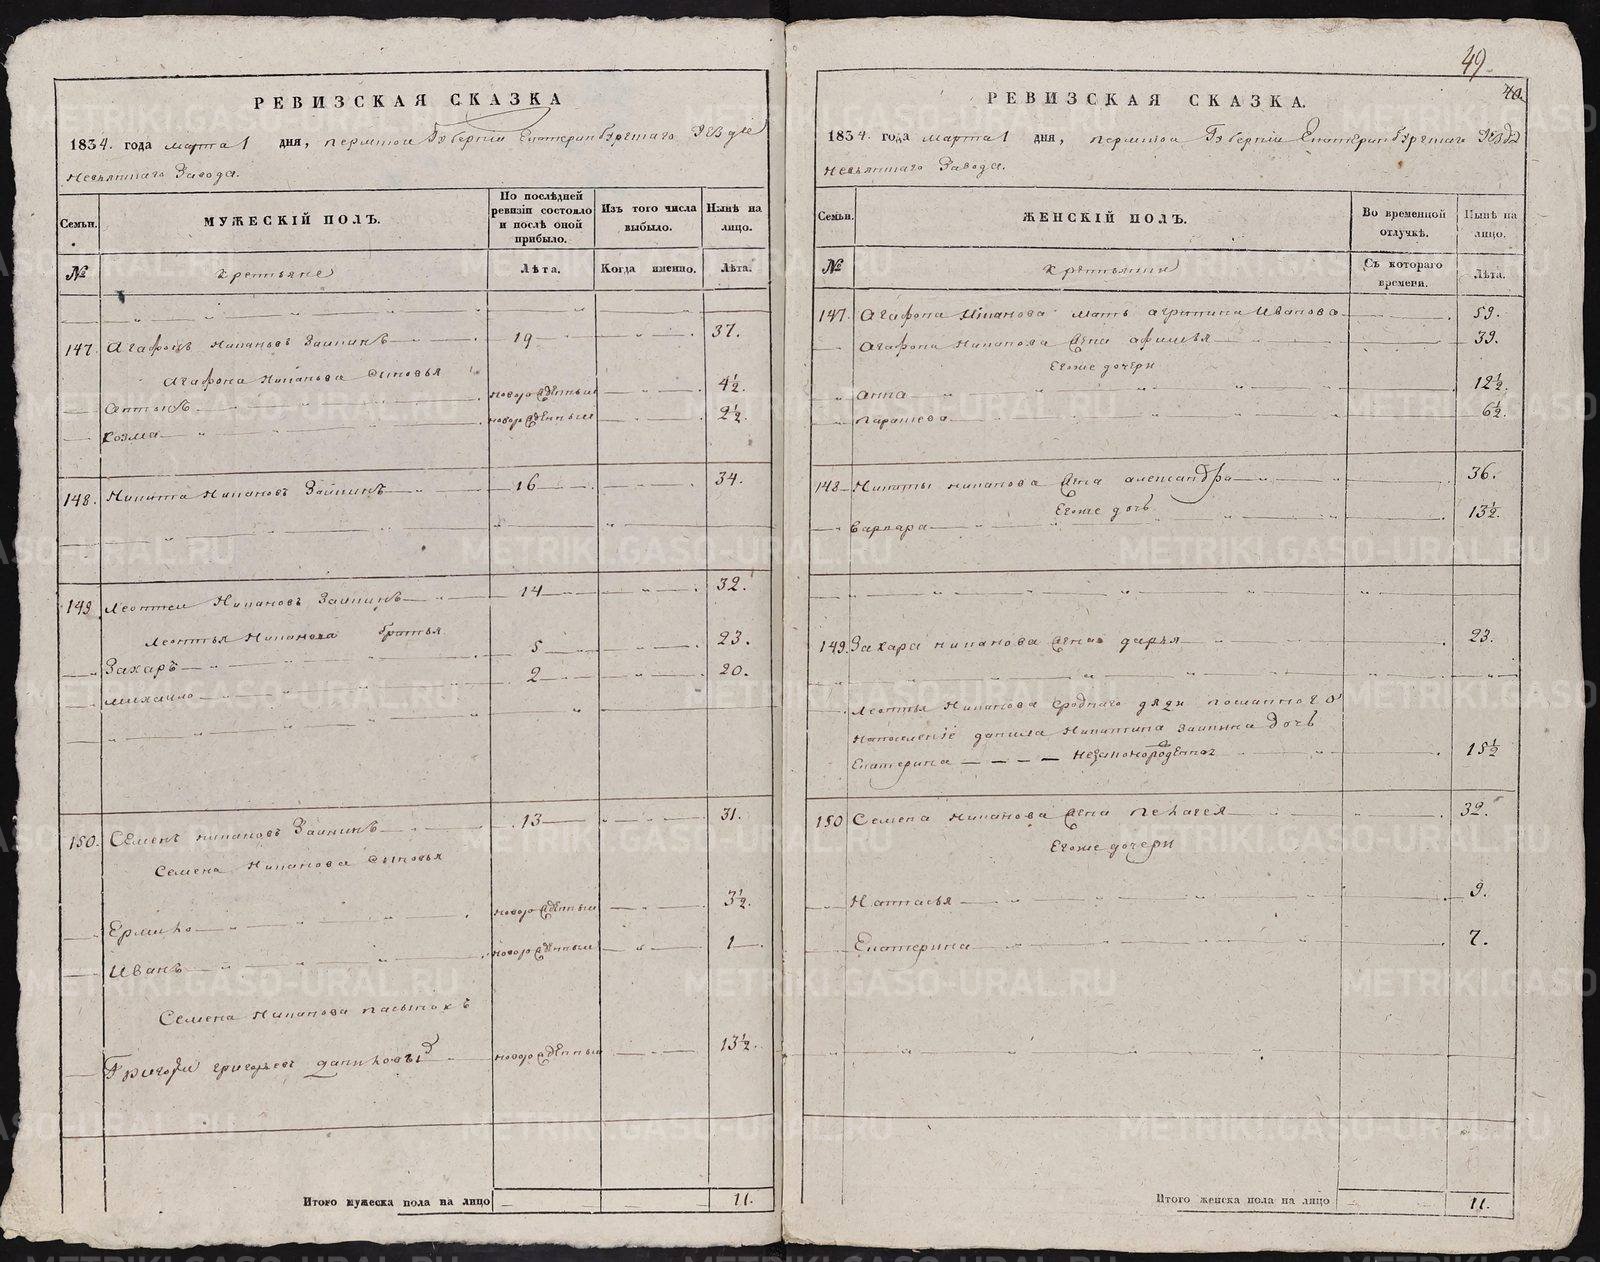 РЕВИЗСКАЯ СКАЗКА
1834. года марта 1 дня, пермской Губернии Екатеринбургскаго Уезда
Невьянскаго Завода.
Семьи. МУЖЕСКІЙ ПОЛЪ. По послѣдней ревизіи состояло и послѣ оной прибыло. Изъ того числа выбыло. Нынѣ на лицо.
№ Крестьяне Лѣта. Когда именно. Лѣта.
147. Агафонъ 19 37.
Агафона сыновья
Антонъ новорожденный 4½
Козма новорожденный 2½.
148. Никита Заикинъ 16 34.
149 Леонтей Заикинъ 14 32.
Леонтья братья
Захаръ 5 23.
Михайло 2 20.
150. Семенъ Заикинъ 13 31.
Семена сыновья
Ермило новорожденный 3½.
Иванъ новорожденный 1
Семена пасынокъ
Григорей григорьевъ новорожденный 13½.
Итого мужеска пола на лицо 11.
49.
РЕВИЗСКАЯ СКАЗКА.
1834. года марта 1 дня, пермской Губернии Екатеринбургскаго Уезда
Невьянскаго Завода.
Семьи. ЖЕНСКІЙ ПОЛЪ. Во временной отлучкѣ. Нынѣ на лицо.
№ Крестьянки Съ котораго времени. Лѣта.
147. Агафона мать агрипина Иванова 59.
Агафона жена афимья 39.
Егоже дочери
анна 12½.
парасковья 6½.
148 Никиты жена александра 36.
Егоже дочь
варвара 13½.
149. Захара жена дарья 23.
Леонтья сроднаго дяди
данила Зайкина дочь
Екатерина незаконорожденная 15½
150 Семена жена пелагея 32.
Егоже дочери
Наталья 9.
Екатерина 7.
Итого женска пола на лицо 11.
METRIKI.GASO-URAL.RU